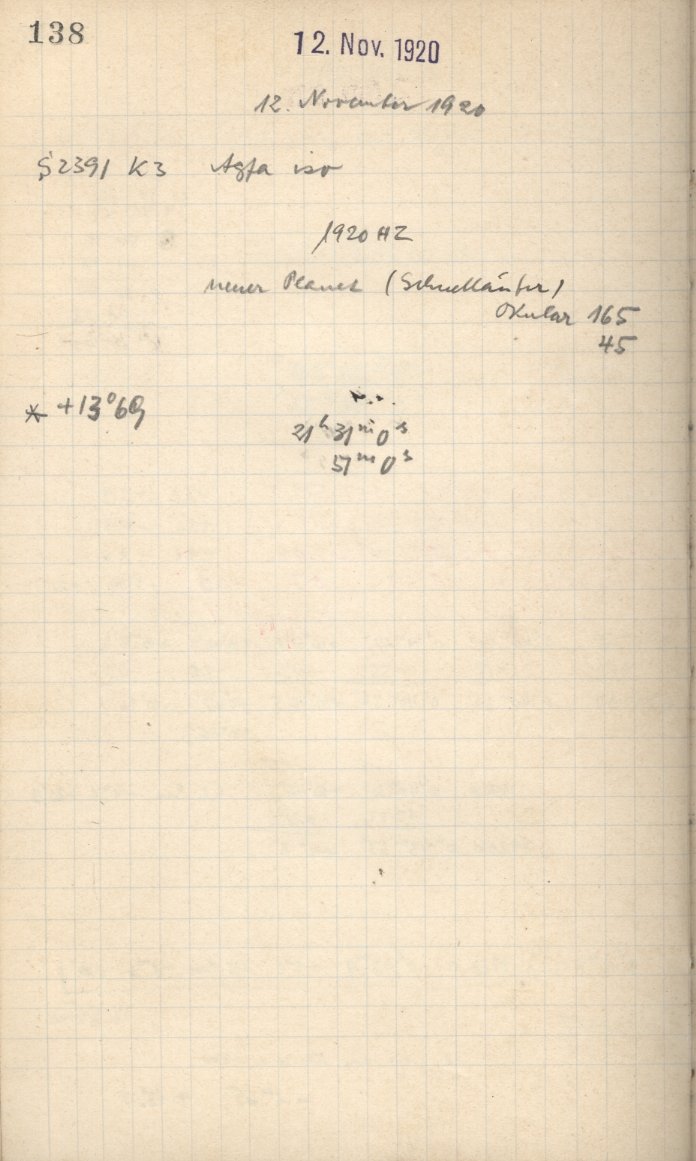 138
12. Nov. 1920
12. November 1920
S 2391 K3 Agfa iso
1920 HZ
neuer Planet (Schnelläufer)
Okular 165
45
* +13°69
21ʰ 31ᵐ 0ˢ
51ᵐ 0ˢ